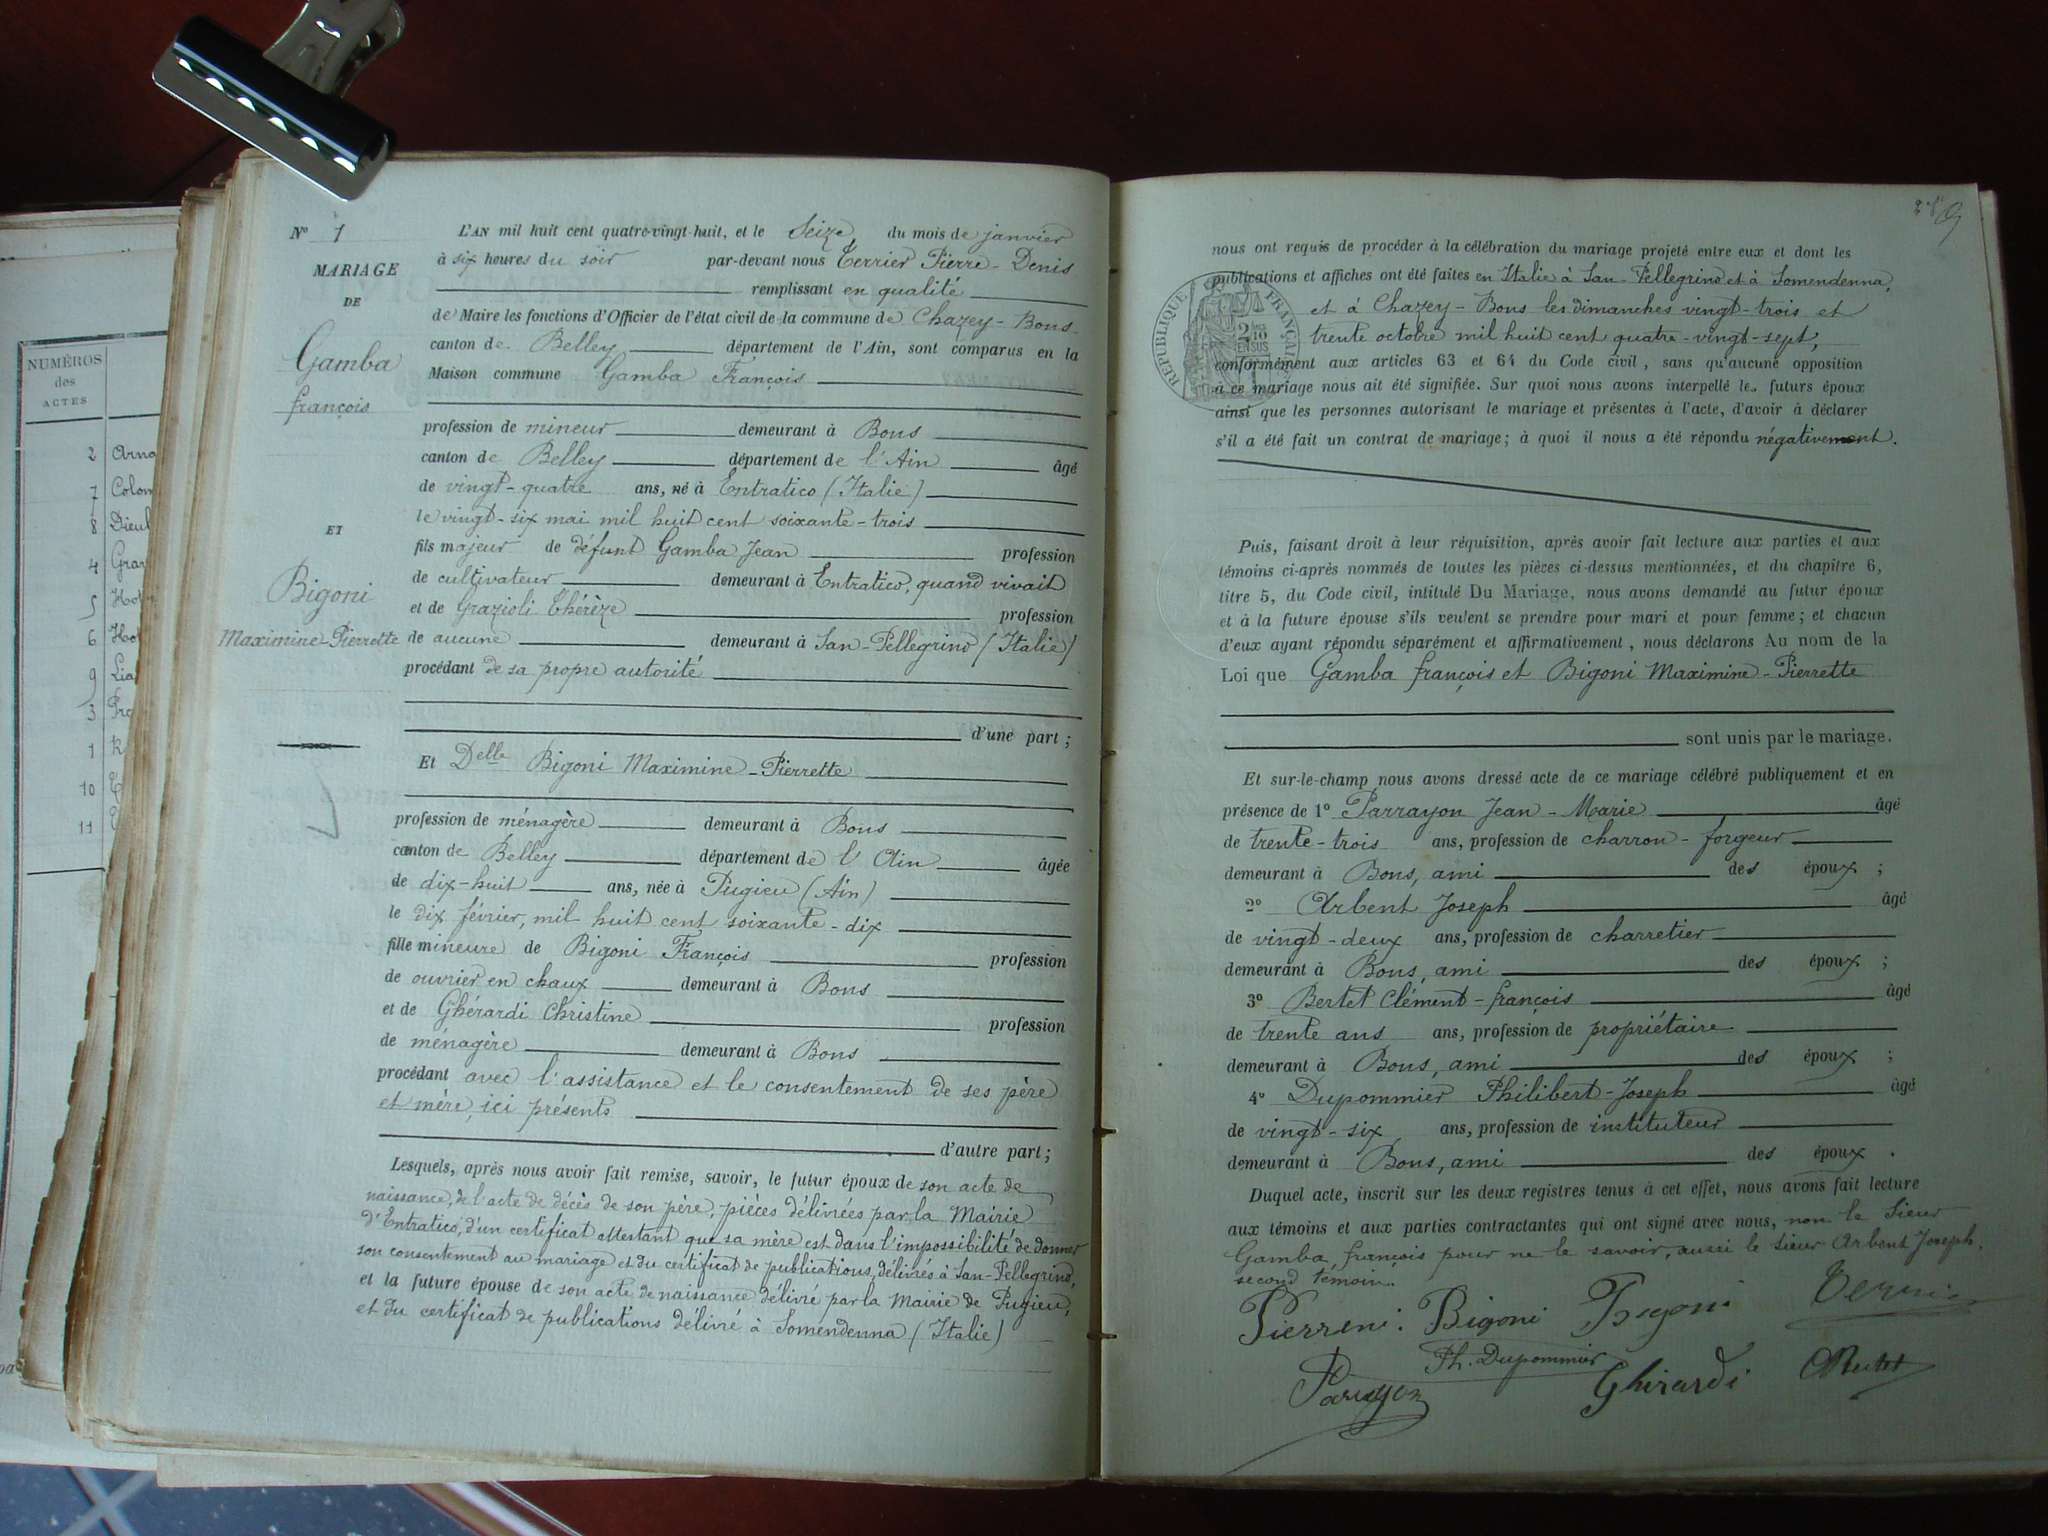 NUMÉROS
des
ACTES
2 Arna
7 Colom
8 Dieul
4 Gra
5 Hot
6 Hot
9 Lia
3 Pro
1
10
11
N° 1
MARIAGE
DE
Gamba
françois
ET
Bigoni
Maximine-Pierrette
L'AN mil huit cent quatre-vingt-huit, et le Seize du mois de janvier
à six heures du soir par-devant nous Terrier Pierre-Denis
remplissant en qualité
de Maire les fonctions d'Officier de l'état civil de la commune de Chazey-Bons
canton de Belley département de l'Ain, sont comparus en la
Maison commune Gamba François
profession de mineur demeurant à Bons
canton de Belley département de l'Ain âgé
de vingt-quatre ans, né à Entratico (Italie)
le vingt-six mai mil huit cent soixante-trois
fils majeur de défunt Gamba Jean profession
de cultivateur demeurant à Entratico, quand vivait
et de Grazioli Thérèze profession
de aucune demeurant à San-Pellegrino (Italie)
procédant de sa propre autorité
d'une part ;
Et Delle Bigoni Maximine-Pierrette
profession de ménagère demeurant à Bons
canton de Belley département de l'Ain âgée
de dix-huit ans, née à Pugieu (Ain)
le dix février, mil huit cent soixante-dix
fille mineure de Bigoni François profession
de ouvrier en chaux demeurant à Bons
et de Ghérardi Christine profession
de ménagère demeurant à Bons
procédant avec l'assistance et le consentement de ses père
et mère, ici présents
d'autre part ;
Lesquels, après nous avoir fait remise, savoir, le futur époux de son acte de
naissance, de l'acte de décès de son père, pièces délivrées par la Mairie
d'Entratico, d'un certificat attestant que sa mère est dans l'impossibilité de donner
son consentement au mariage et du certificat de publications, délivrés à San-Pellegrino,
et la future épouse de son acte de naissance délivré par la Mairie de Pugieu,
et du certificat de publications délivré à Somendenna (Italie)
nous ont requis de procéder à la célébration du mariage projeté entre eux et dont les
publications et affiches ont été faites en Italie à San Pellegrino et à Somendenna,
et à Chazey-Bons les dimanches vingt-trois et
trente octobre mil huit cent quatre-vingt-sept,
conformément aux articles 63 et 64 du Code civil, sans qu'aucune opposition
à ce mariage nous ait été signifiée. Sur quoi nous avons interpellé les futurs époux
ainsi que les personnes autorisant le mariage et présentes à l'acte, d'avoir à déclarer
s'il a été fait un contrat de mariage ; à quoi il nous a été répondu négativement.
RÉPUBLIQUE FRANÇAISE
2/10
EN SUS
Puis, faisant droit à leur réquisition, après avoir fait lecture aux parties et aux
témoins ci-après nommés de toutes les pièces ci-dessus mentionnées, et du chapitre 6,
titre 5, du Code civil, intitulé Du Mariage, nous avons demandé au futur époux
et à la future épouse s'ils veulent se prendre pour mari et pour femme ; et chacun
d'eux ayant répondu séparément et affirmativement, nous déclarons Au nom de la
Loi que Gamba françois et Bigoni Maximine-Pierrette
sont unis par le mariage.
Et sur-le-champ nous avons dressé acte de ce mariage célébré publiquement et en
présence de 1° Parrayon Jean-Marie âgé
de trente-trois ans, profession de charron-forgeur
demeurant à Bons, ami des époux ;
2° Arbent Joseph âgé
de vingt-deux ans, profession de charretier
demeurant à Bons, ami des époux ;
3° Bertet Clément-françois âgé
de trente ans ans, profession de propriétaire
demeurant à Bons, ami des époux ;
4° Dupommier Philibert-Joseph âgé
de vingt-six ans, profession de instituteur
demeurant à Bons, ami des époux.
Duquel acte, inscrit sur les deux registres tenus à cet effet, nous avons fait lecture
aux témoins et aux parties contractantes qui ont signé avec nous, non le Sieur
Gamba, françois pour ne le savoir, aussi le Sieur Arbent Joseph,
second témoin.
Bigoni
Ph. Dupommier
Parrayon Ghirardi